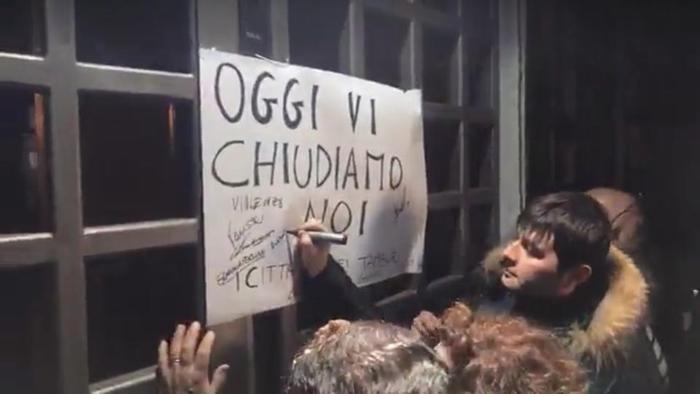 OGGI VI
CHIUDIAMO
NOI
VINCENZO
I CITT
TAMBURI